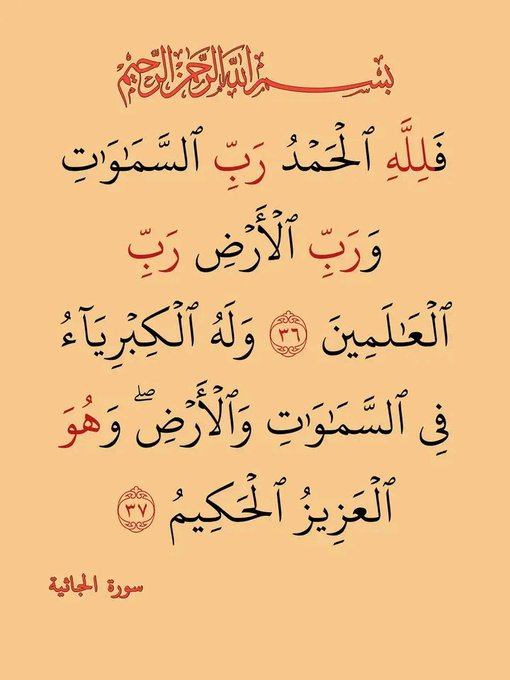 بسم الله الرحمن الرحيم
فَلِلَّهِ ٱلْحَمْدُ رَبِّ ٱلسَّمَـٰوَٰتِ
وَرَبِّ ٱلْأَرْضِ رَبِّ
ٱلْعَـٰلَمِينَ ٣٦ وَلَهُ ٱلْكِبْرِيَآءُ
فِى ٱلسَّمَـٰوَٰتِ وَٱلْأَرْضِ ۖ وَهُوَ
ٱلْعَزِيزُ ٱلْحَكِيمُ ٣٧
سورة الجاثية